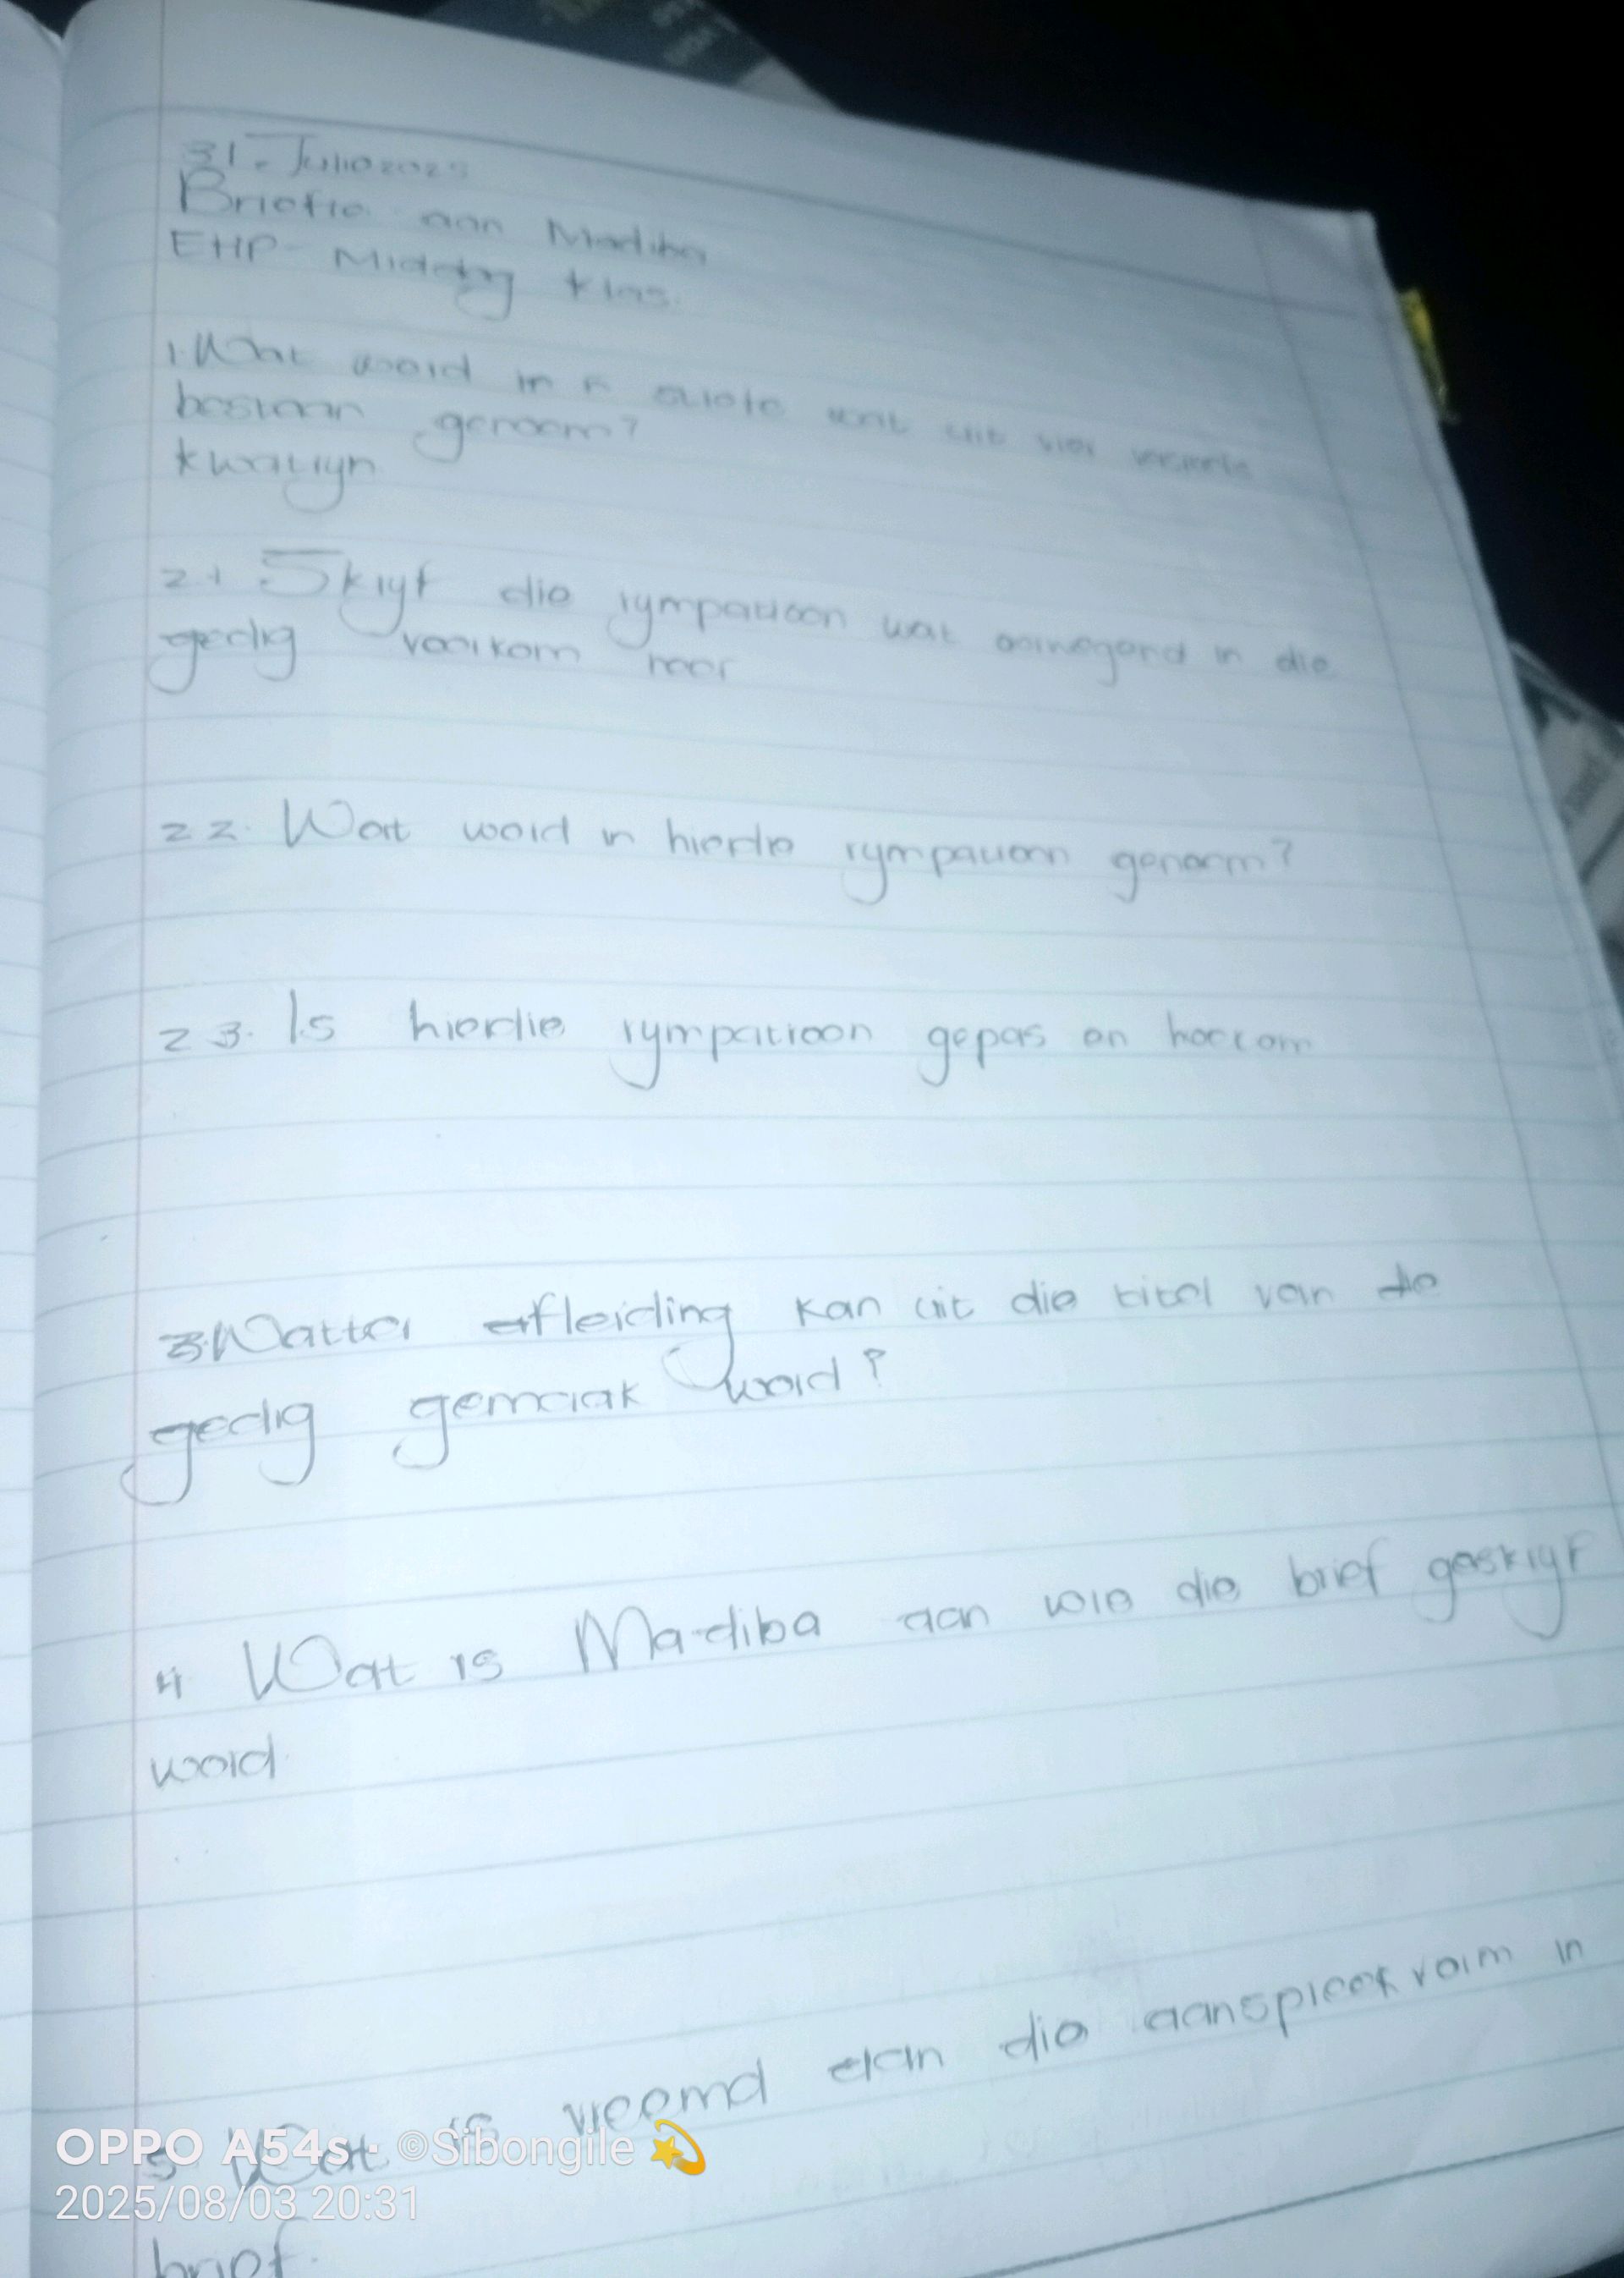 31 - Julie 2025
Briefie aan Madiba
EHP - Middag klas.
1. Wat word in n strofe wat uit vier versreëls
bestaan genoem?
kwatryn
2.1 Skryf die rympatroon wat in die
gedig voorkom neer
2 2. Wat word in hierdie rympatroon genoem?
2 3. Is hierdie rympatroon gepas en hoekom
3. Watter afleiding kan uit die titel van die
gedig gemaak word?
4 Wat is Madiba aan wie die brief geskryf
word
5 Wat is vreemd aan die aanspreek vorm in
brief.
OPPO A54s · ©Sibongile 💫
2025/08/03 20:31